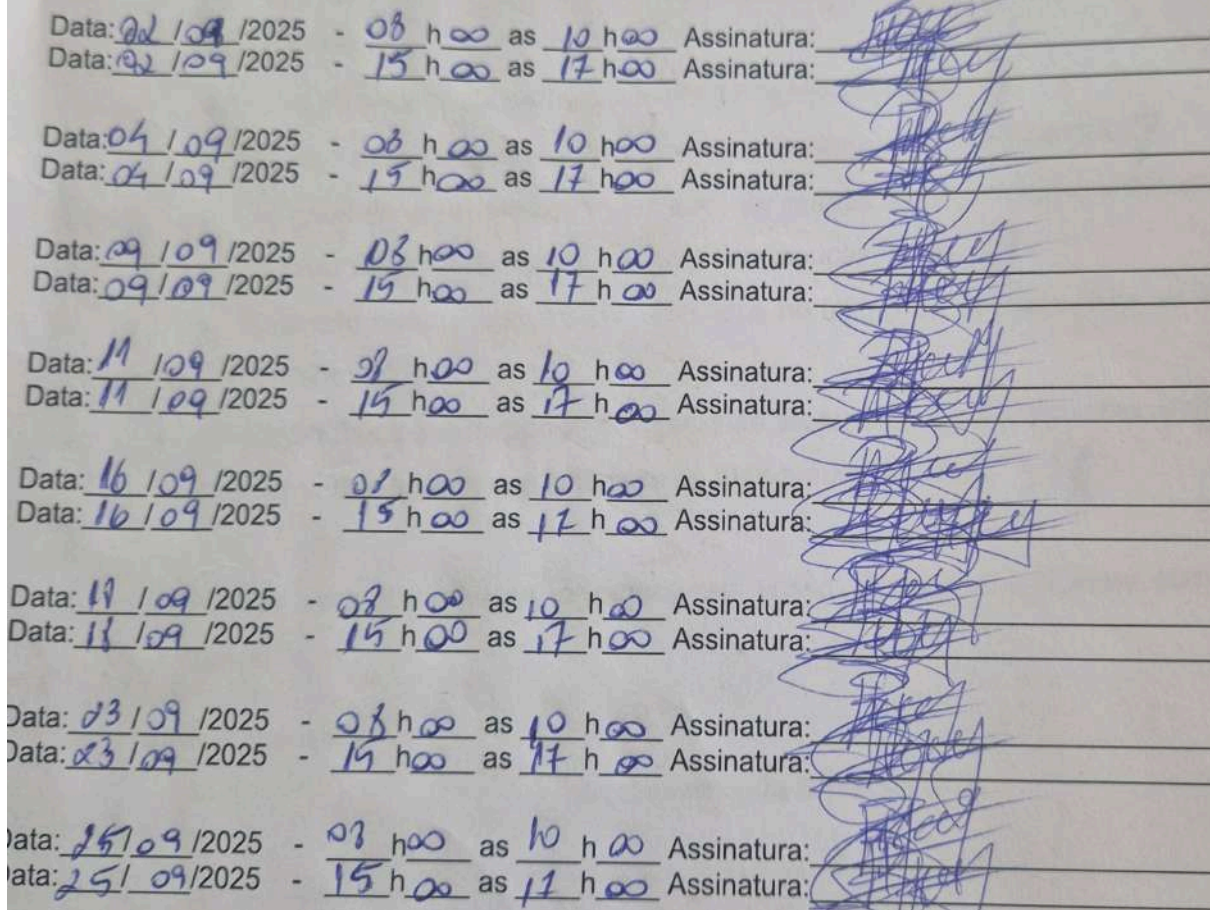 Data: 02 / 09 /2025 - 08 h 00 as 10 h 00 Assinatura:
Data: 02 / 09 /2025 - 15 h 00 as 17 h 00 Assinatura:
Data: 04 / 09 /2025 - 08 h 00 as 10 h 00 Assinatura:
Data: 04 / 09 /2025 - 15 h 00 as 17 h 00 Assinatura:
Data: 09 / 09 /2025 - 08 h 00 as 10 h 00 Assinatura:
Data: 09 / 09 /2025 - 15 h 00 as 17 h 00 Assinatura:
Data: 11 / 09 /2025 - 08 h 00 as 10 h 00 Assinatura:
Data: 11 / 09 /2025 - 15 h 00 as 17 h 00 Assinatura:
Data: 16 / 09 /2025 - 08 h 00 as 10 h 00 Assinatura:
Data: 16 / 09 /2025 - 15 h 00 as 17 h 00 Assinatura:
Data: 18 / 09 /2025 - 08 h 00 as 10 h 00 Assinatura:
Data: 18 / 09 /2025 - 15 h 00 as 17 h 00 Assinatura:
Data: 23 / 09 /2025 - 08 h 00 as 10 h 00 Assinatura:
Data: 23 / 09 /2025 - 15 h 00 as 17 h 00 Assinatura:
ata: 25 / 09 /2025 - 08 h 00 as 10 h 00 Assinatura:
ata: 25 / 09 /2025 - 15 h 00 as 17 h 00 Assinatura: